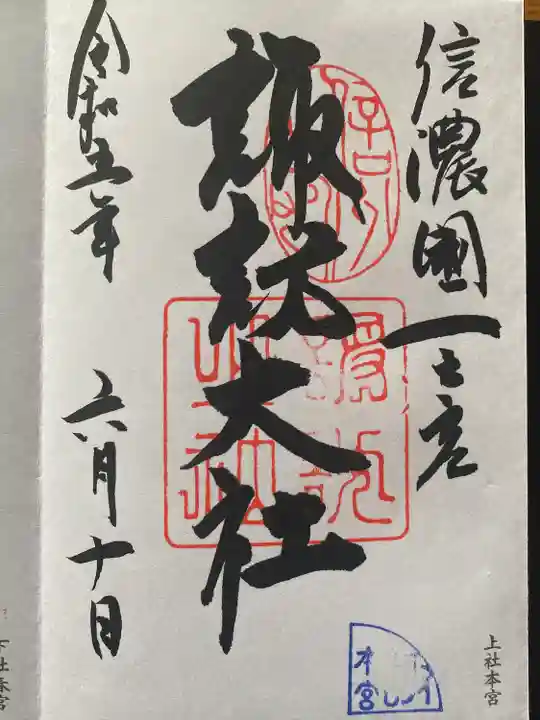 信濃國一之宮
諏訪大社
令和五年 六月十日
上社本宮
本宮
下社春宮